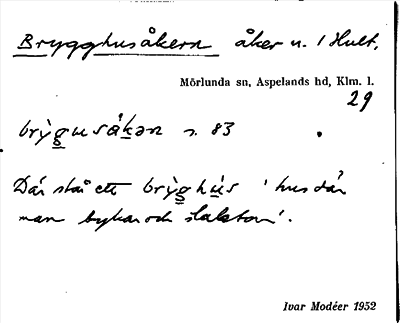 Brygghusåkern åker n. 1 Hult,
Mörlunda sn, Aspelands hd, Klm. l.
29
brỳgusåkən s. 83
Där stått ett brỳghùs 'hus där
man bykar och slaktar'.
Ivar Modéer 1952